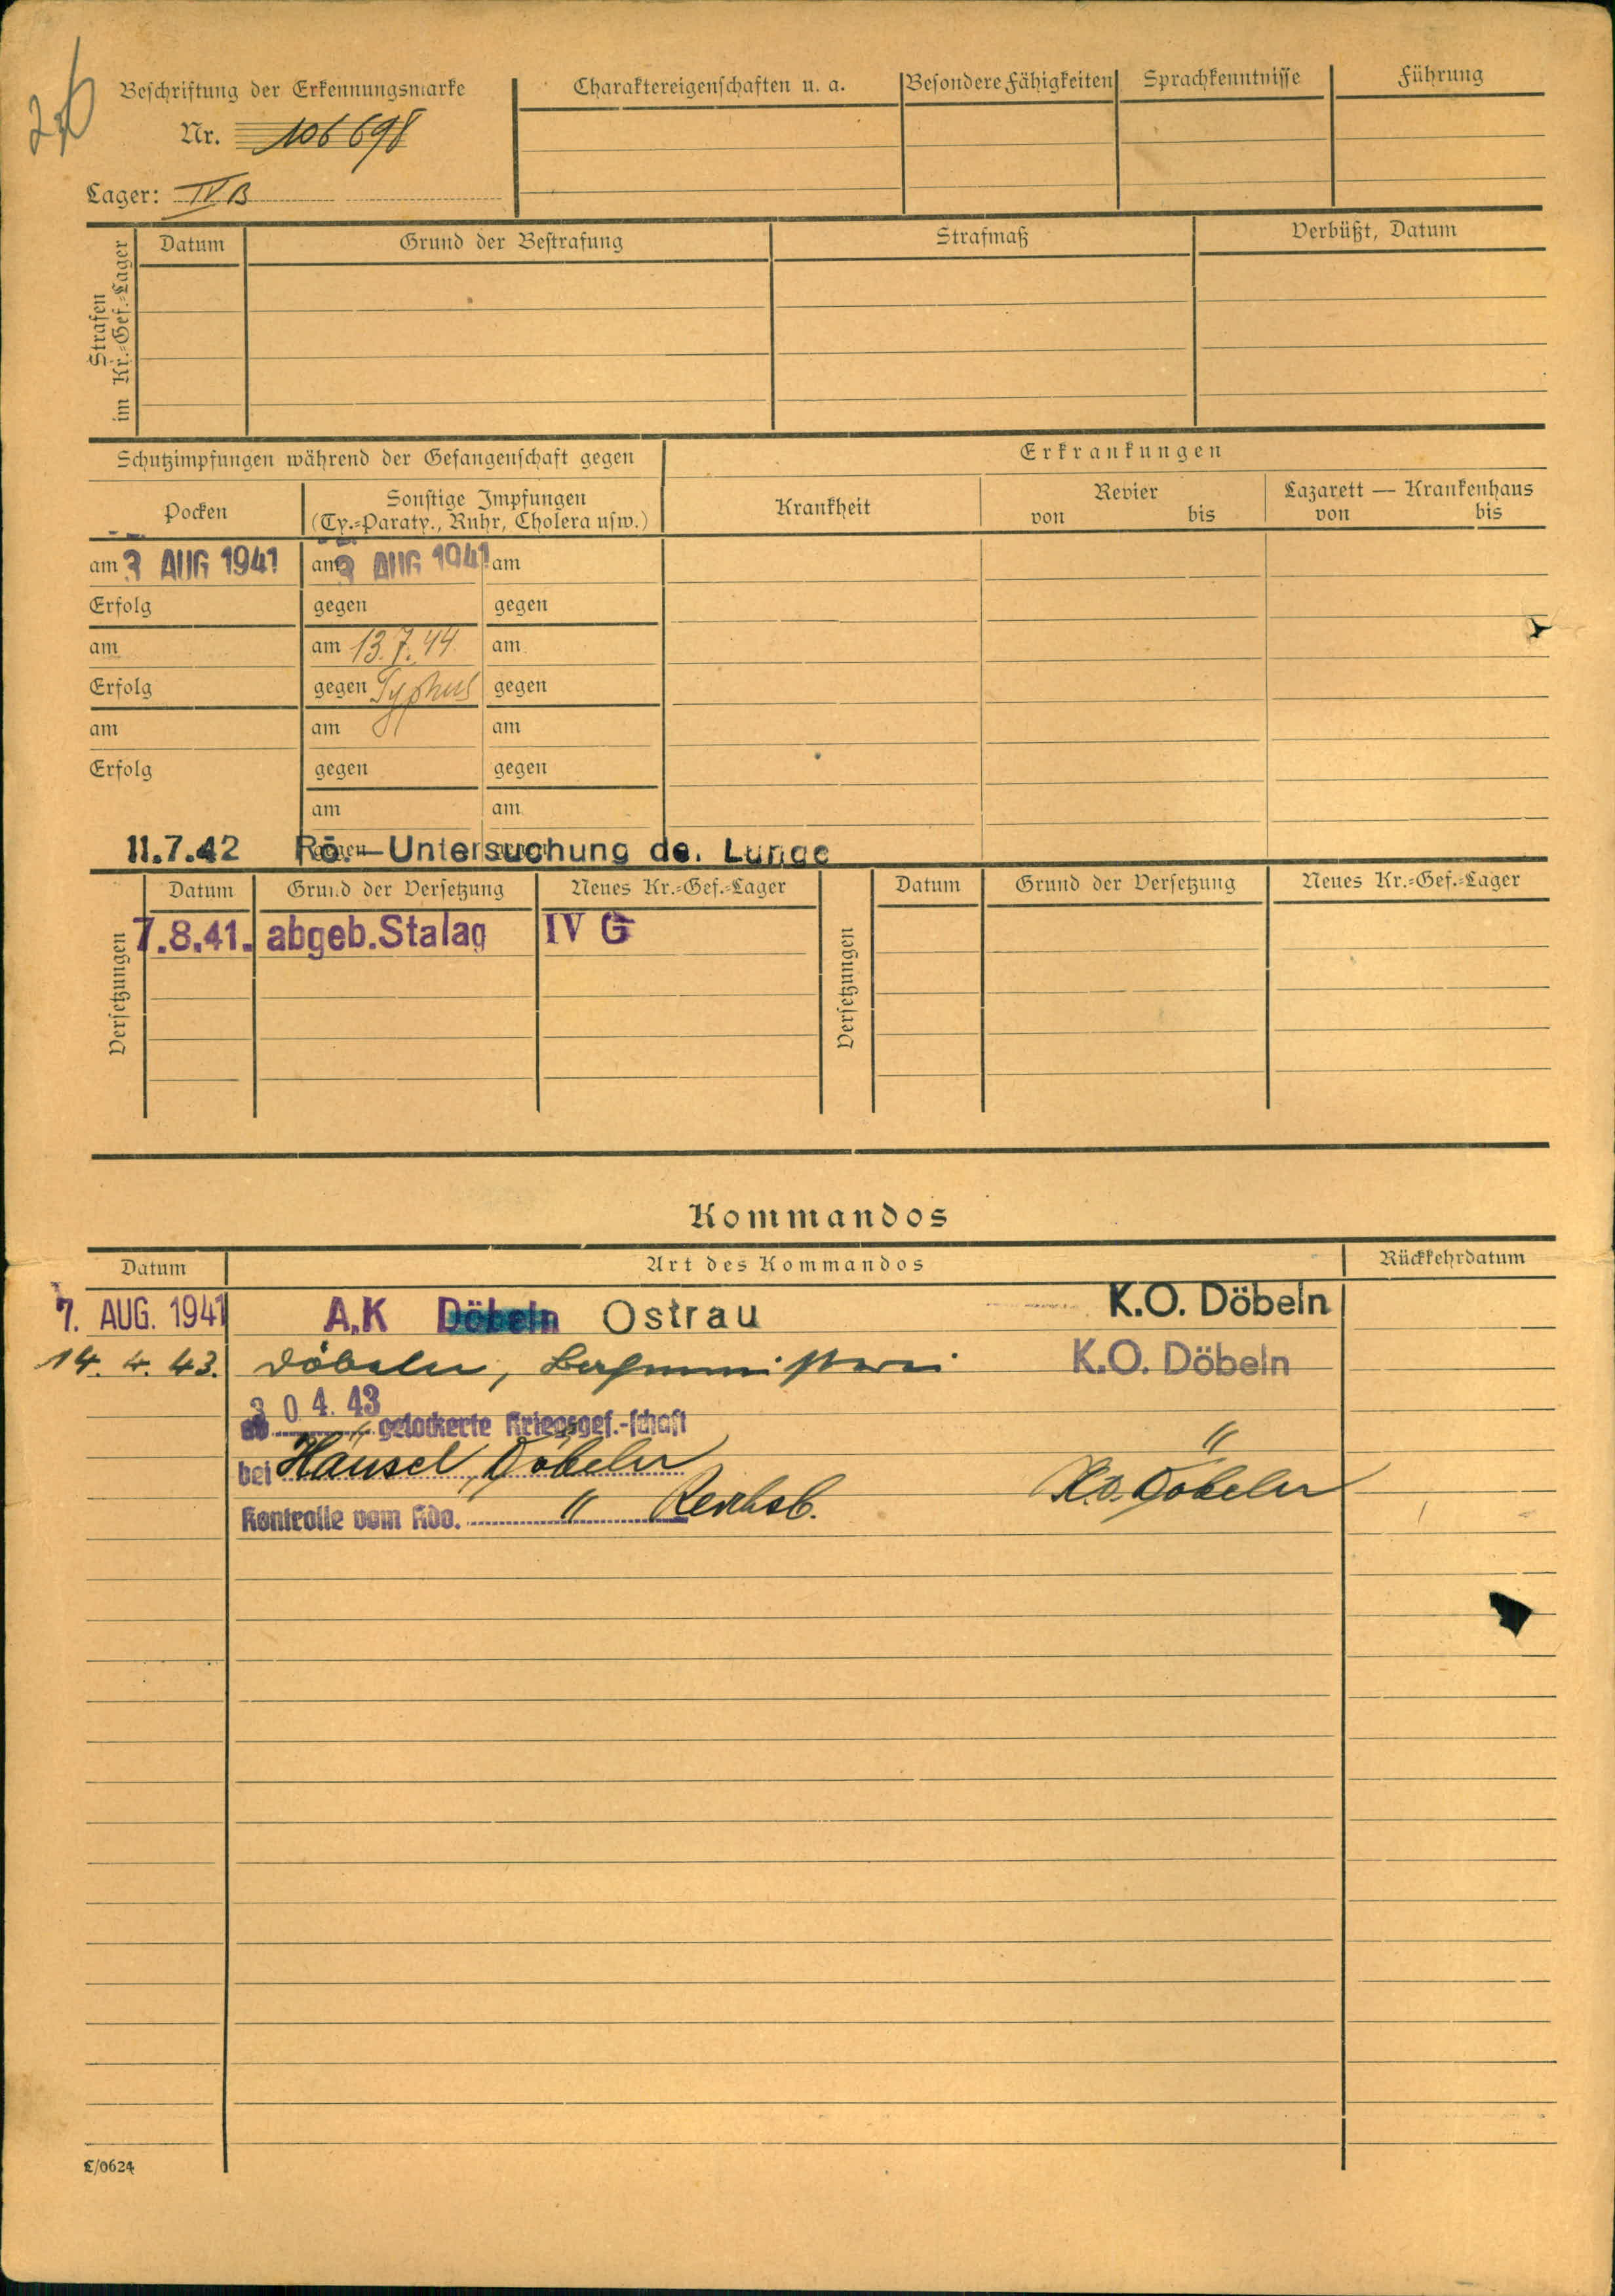 Beschriftung der Erkennungsmarke
Nr. 106698
Lager: IV B
Charaktereigenschaften u. a.
Besondere Fähigkeiten
Sprachkenntnisse
Führung
Strafen
im Kr.=Gef.=Lager
Datum
Grund der Bestrafung
Strafmaß
Verbüßt, Datum
Schutzimpfungen während der Gefangenschaft gegen
Erkrankungen
Pocken
Sonstige Impfungen
(Ty.=Paraty., Ruhr, Cholera usw.)
Krankheit
Revier
von bis
Lazarett — Krankenhaus
von bis
am 3 AUG 1941 am 3 AUG 1941 am
Erfolg gegen gegen
am am 13.7.44 am
Erfolg gegen Typhus gegen
am am am
Erfolg gegen gegen
am am
11.7.42 Rö.-Untersuchung de. Lunge
Versetzungen
Datum Grund der Versetzung Neues Kr.=Gef.=Lager
7.8.41. abgeb. Stalag IV G
Versetzungen
Datum Grund der Versetzung Neues Kr.=Gef.=Lager
Kommandos
Datum Art des Kommandos Rückkehrdatum
7. AUG. 1941 A.K Döbeln Ostrau K.O. Döbeln
14. 4. 43. Döbeln, K.O. Döbeln
30 4. 43
ab gelockerte Kriegsgef.-schaft
bei Häusel, Döbeln "
Kontrolle vom Kdo. " Reichsb. K.O. Döbeln
E/0624